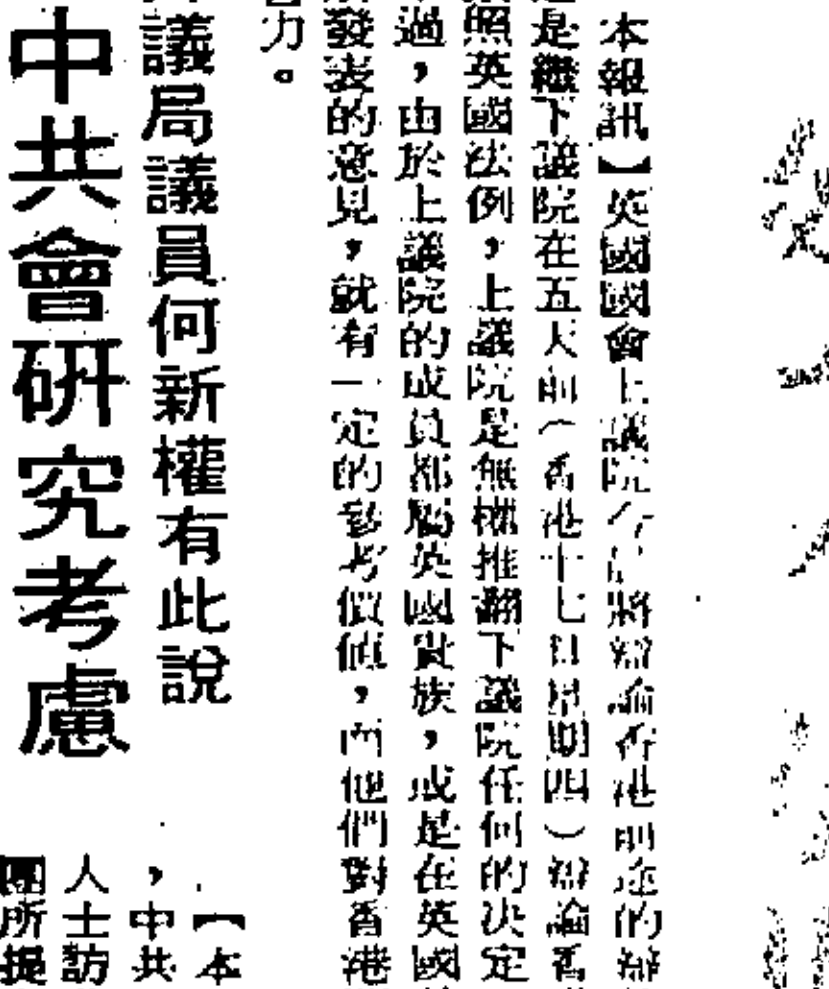 本報訊】英國國會上議院今日將辯論香港前途的辯
是繼下議院在五天前（香港十七日星期四）辯論香
照英國法例，上議院是無權推翻下議院任何的決定
過，由於上議院的成員都屬英國貴族，或是在英國
發表的意見，就有一定的參考價值，而他們對香港
力。
議局議員何新權有此說
中共會研究考慮
【本
，中共
人士訪
團所提